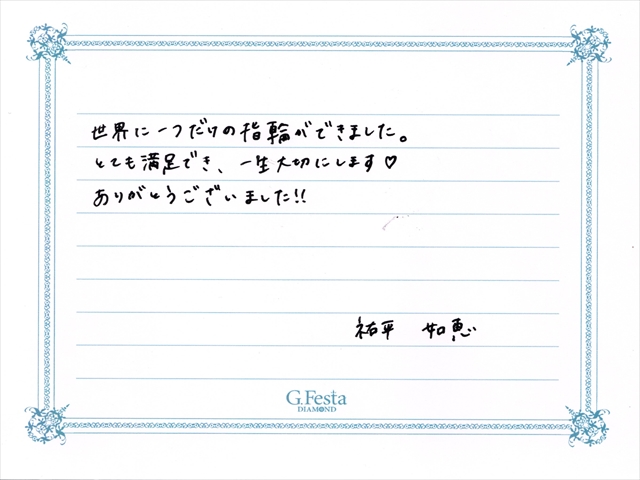 世界に一つだけの指輪ができました。
とても満足でき、一生大切にします♡
ありがとうございました!!
祐平 知恵
G.Festa
DIAMOND